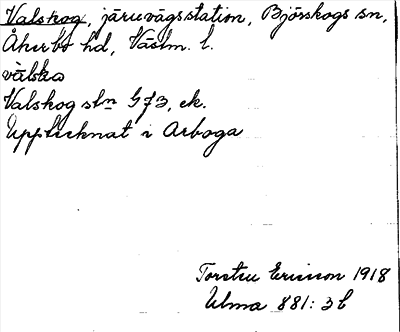 Valskog, järnvägsstation, Björskogs sn,
Åkerbo hd, Västm. l.
vàlska
Valskog stn GJ3, ek.
Upptecknat i Arboga
Torsten Ericsson 1918
Ulma 881:3b